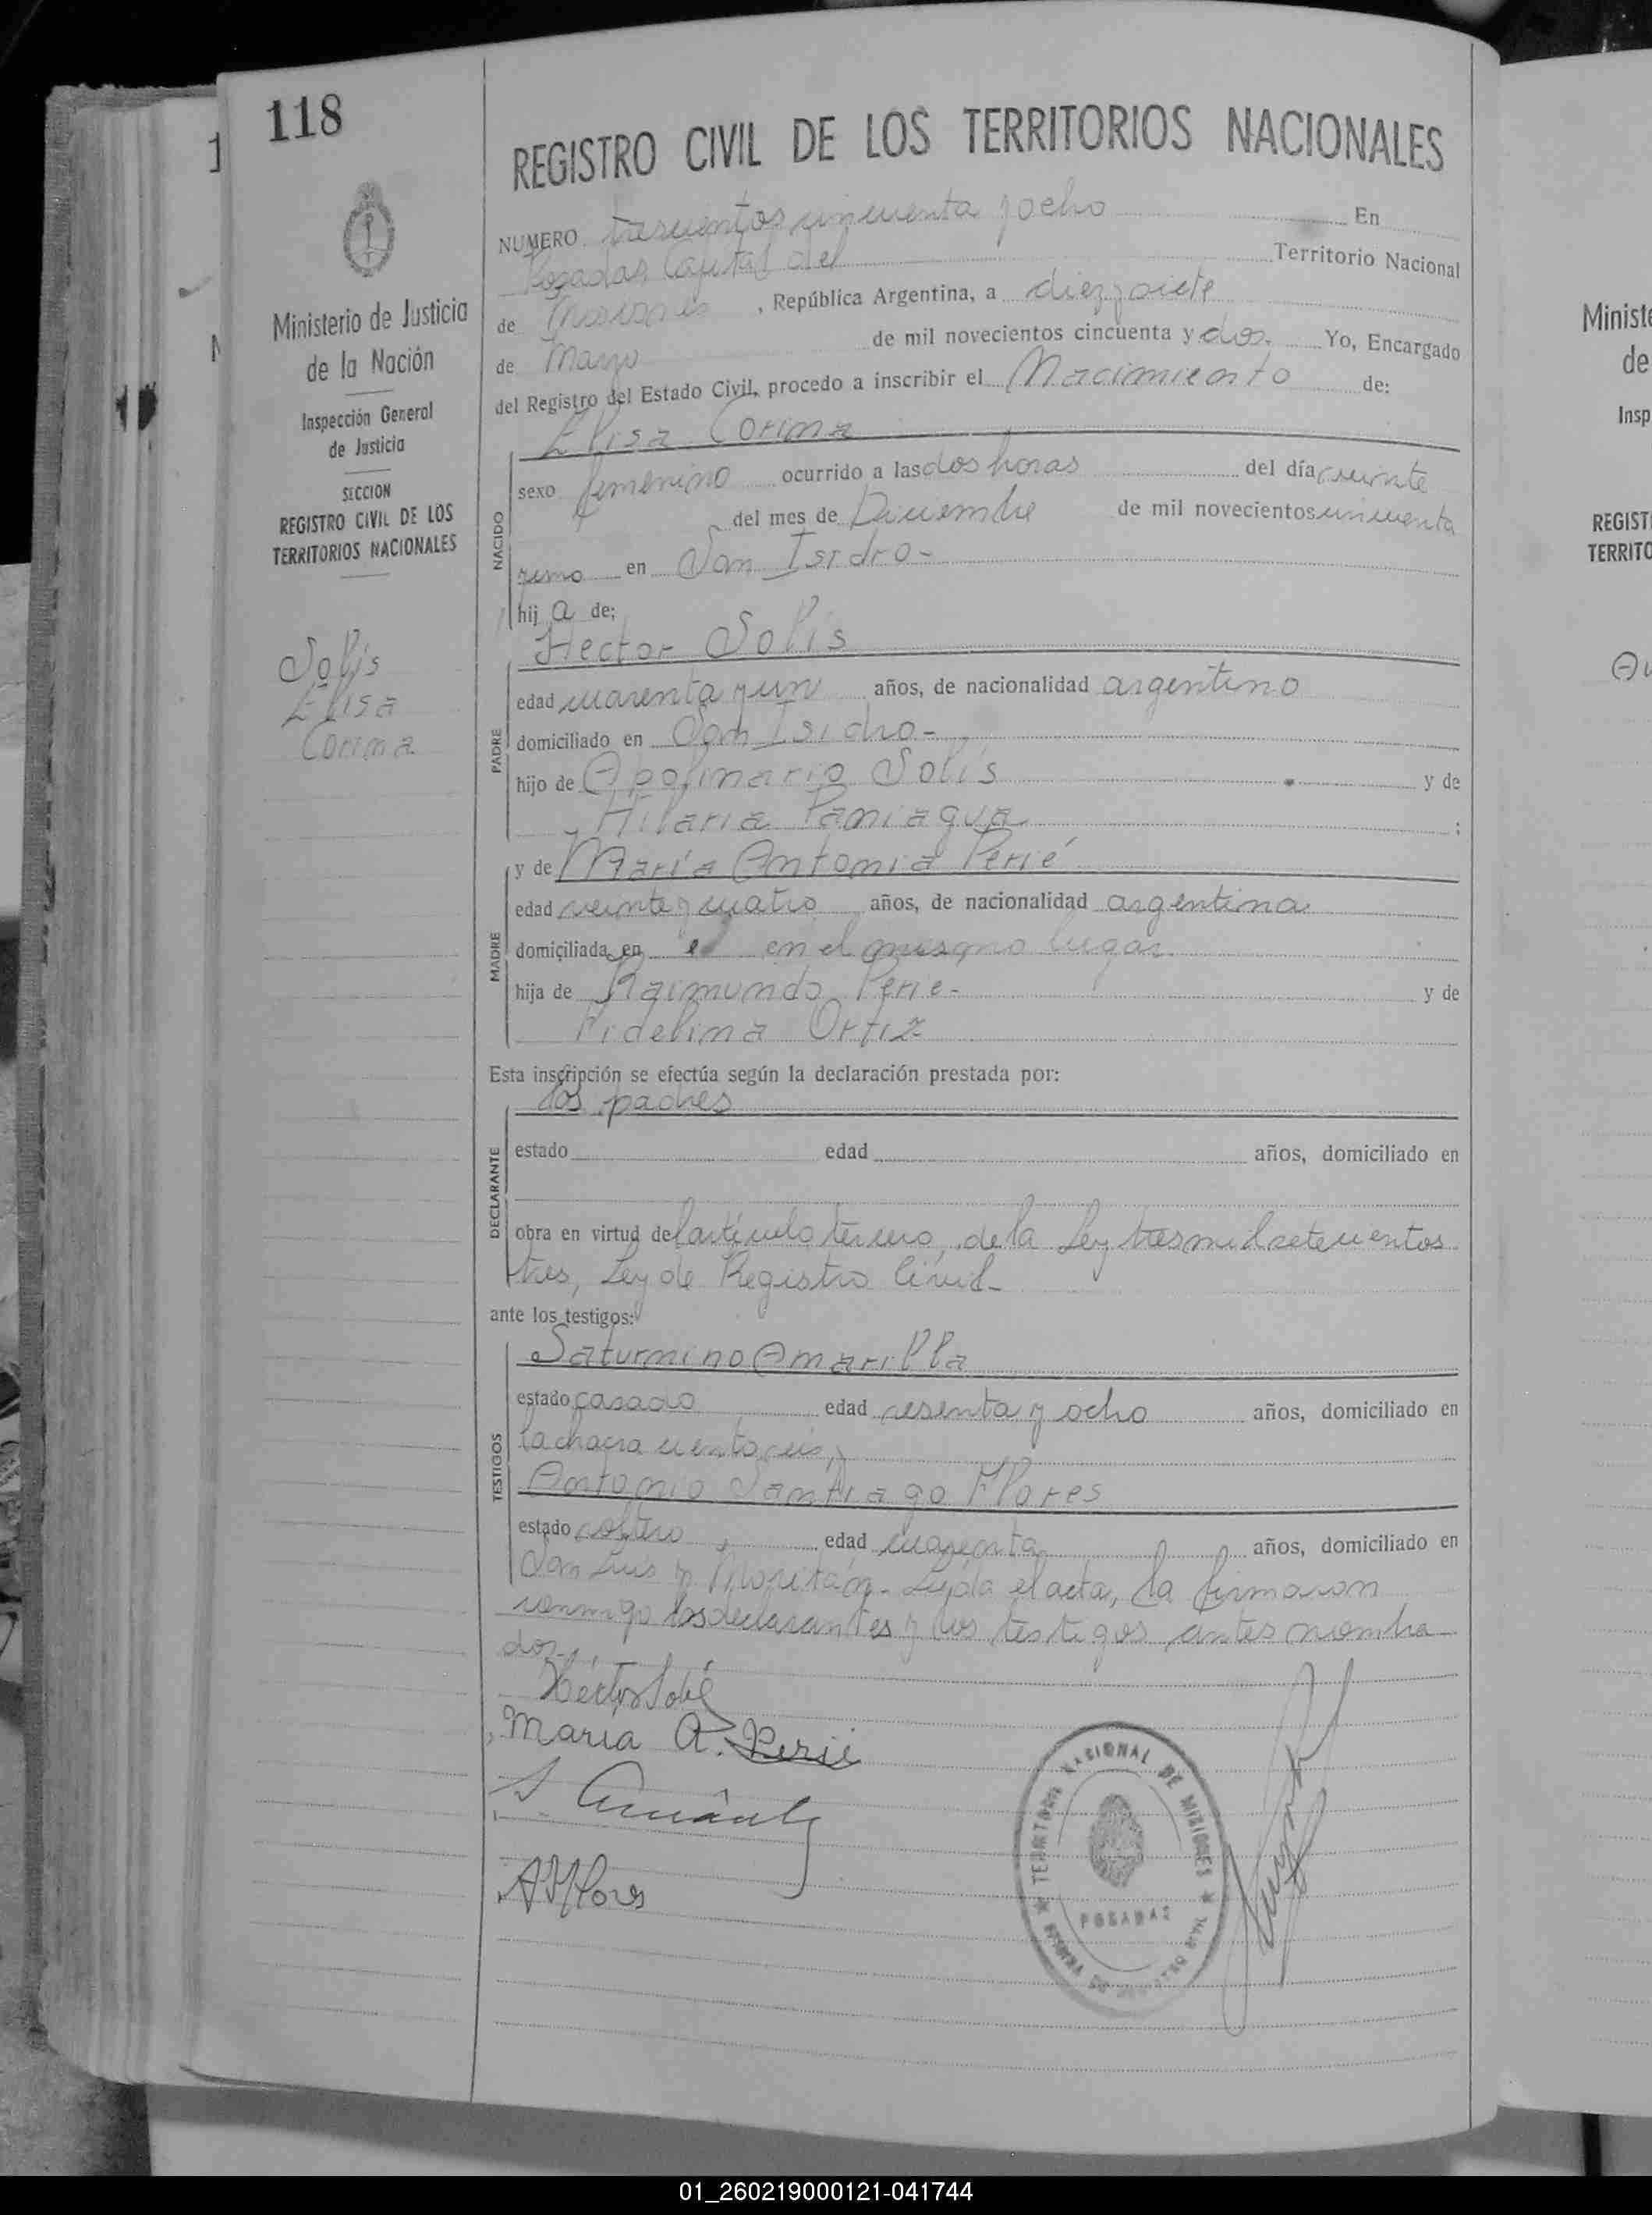 118
REGISTRO CIVIL DE LOS TERRITORIOS NACIONALES
NUMERO trescientos cincuenta y ocho En
Posadas, Capital del Territorio Nacional
de Misiones, República Argentina, a diez y siete
de Marzo de mil novecientos cincuenta y dos. Yo, Encargado
del Registro del Estado Civil, procedo a inscribir el Nacimiento de:
Elisa Corina
NACIDO
sexo femenino ocurrido a las dos horas del día veinte
del mes de Diciembre de mil novecientos cincuenta
y uno en San Isidro-
hija de:
Hector Solis
PADRE
edad cuarenta y un años, de nacionalidad argentino
domiciliado en San Isidro-
hijo de Apolinario Solis y de
Hilaria Paniagua ;
y de María Antonia Perié
MADRE
edad veinte y cuatro años, de nacionalidad argentina
domiciliada en en el mismo lugar
hija de Raimundo Perie- y de
Fidelina Ortiz
Esta inscripción se efectúa según la declaración prestada por:
los padres
DECLARANTE
estado edad años, domiciliado en
obra en virtud del artículo tercero, de la Ley tres mil setecientos
tres, Ley de Registro Civil-
ante los testigos:
Saturnino Amarilla
TESTIGOS
estado casado edad sesenta y ocho años, domiciliado en
la chacra ciento seis, y
Antonio Santiago Flores
estado soltero, edad cuarenta años, domiciliado en
San Luis y Moritán- Leída el acta, la firmaron
conmigo los declarantes y los testigos antes nombra
dos-
Héctor Solis
Maria A. Perié
A S Flores
TERRITORIO NACIONAL DE MISIONES
POSADAS
Ministerio de Justicia
de la Nación
Inspección General
de Justicia
SECCION
REGISTRO CIVIL DE LOS
TERRITORIOS NACIONALES
Solis
Elisa
Corina
Minist
de
Insp
REGIST
TERRITO
01_260219000121-041744